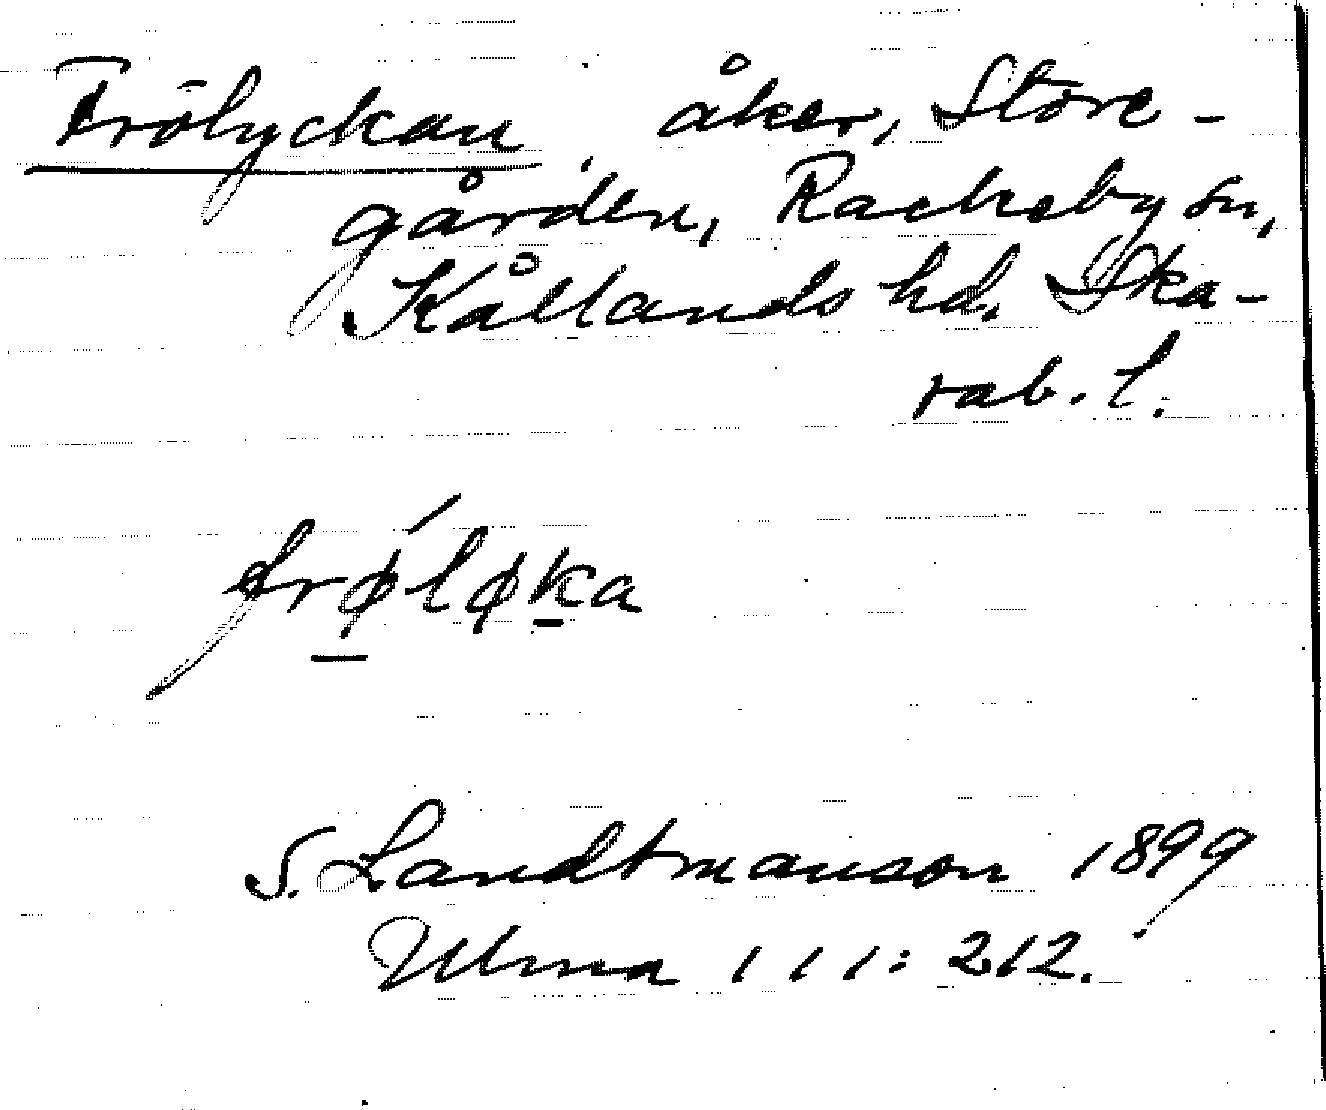 Frölyckan, åker, Store-
gården, Rackeby sn,
Kållands hd. Ska-
rab. l.
frøløka
S. Landtmanson 1899
Ulma 111:212.